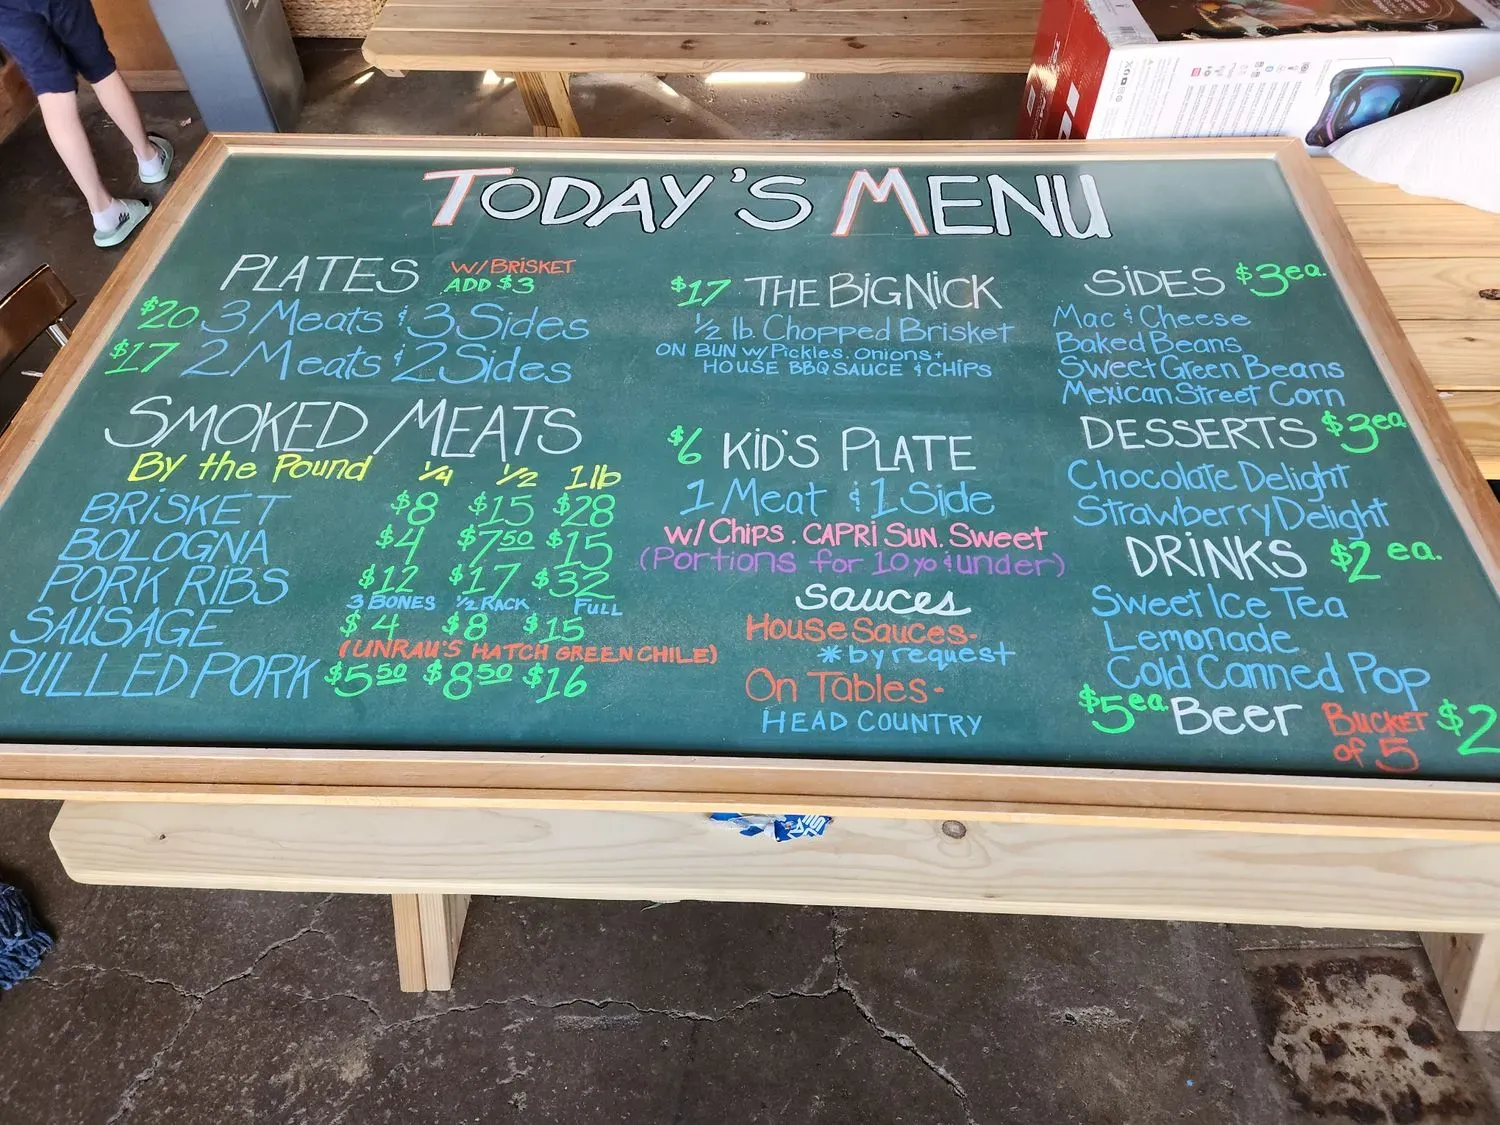 TODAY'S MENU
PLATES W/BRISKET ADD $3
$20 3 Meats & 3 Sides
$17 2 Meats & 2 Sides
SMOKED MEATS
By the Pound 1/4 1/2 1lb
BRISKET $8 $15 $28
BOLOGNA $4 $7.50 $15
PORK RIBS $12 $17 $32
3 BONES 1/2 RACK FULL
SAUSAGE $4 $8 $15
(UNRAU'S HATCH GREEN CHILE)
PULLED PORK $5.50 $8.50 $16
$17 THE BIG NICK
1/2 lb. Chopped Brisket
ON BUN w/ Pickles. Onions +
HOUSE BBQ SAUCE & CHIPS
$6 KID'S PLATE
1 Meat & 1 Side
w/ Chips. CAPRI SUN. Sweet
(Portions for 10yo & under)
Sauces
House Sauces-
* by request
On Tables-
HEAD COUNTRY
SIDES $3 ea.
Mac & Cheese
Baked Beans
Sweet Green Beans
Mexican Street Corn
DESSERTS $3 ea
Chocolate Delight
Strawberry Delight
DRINKS $2 ea.
Sweet Ice Tea
Lemonade
Cold Canned Pop
$5 ea. Beer BUCKET of 5 $2